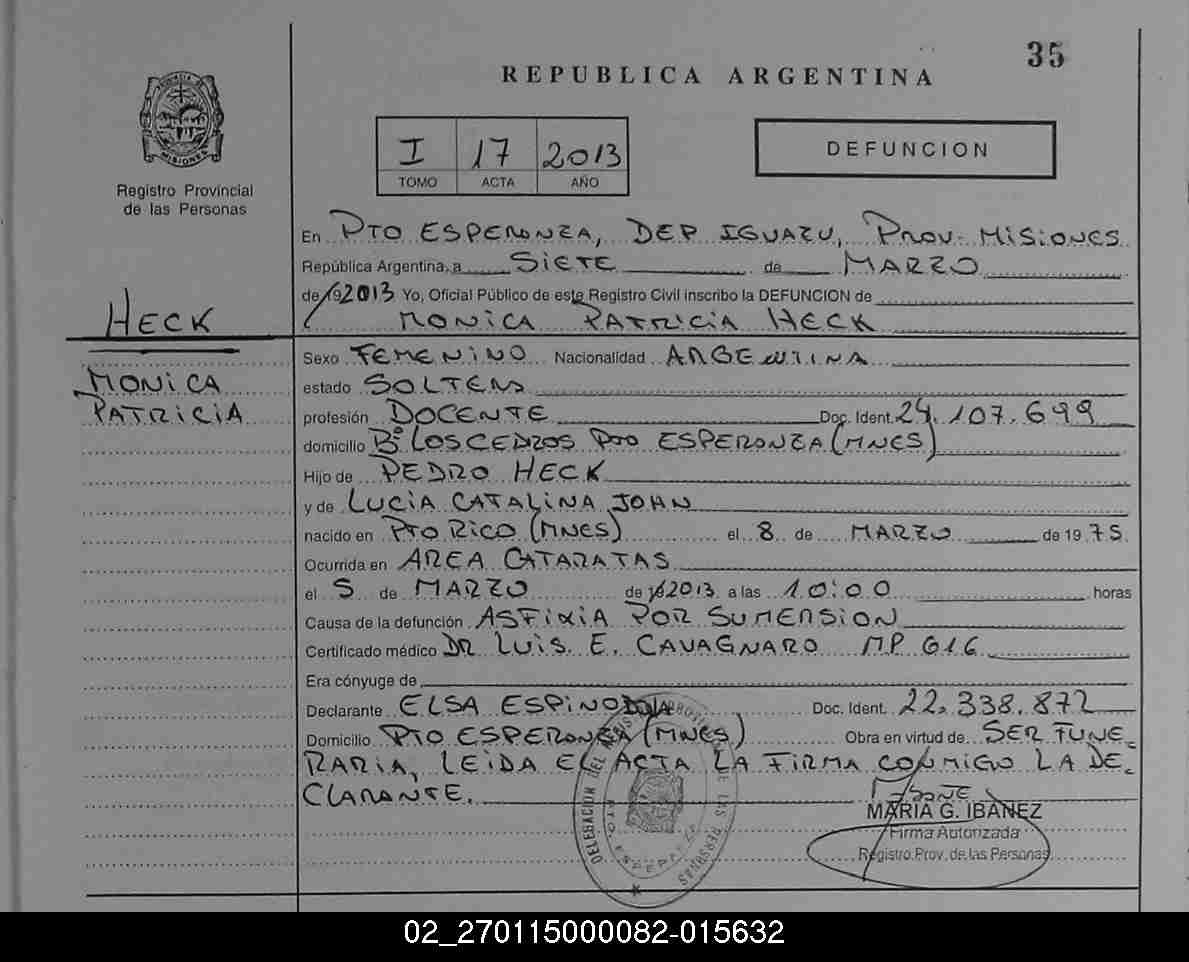 35
REPUBLICA ARGENTINA
PROVINCIA DE MISIONES
Registro Provincial
de las Personas
I 17 2013
TOMO ACTA AÑO
DEFUNCION
HECK
MONICA
PATRICIA
En PTO ESPERANZA, DEP IGUAZU, PROV. MISIONES
República Argentina, a SIETE de MARZO
de 192013 Yo, Oficial Público de este Registro Civil inscribo la DEFUNCION de
MONICA PATRICIA HECK
Sexo FEMENINO Nacionalidad ARGENTINA
estado SOLTERA
profesión DOCENTE Doc. Ident. 24.107.699
domicilio Bº LOS CEDROS PTO ESPERANZA (MNES)
Hijo de PEDRO HECK
y de LUCIA CATALINA JOHN
nacido en PTO RICO (MNES) el 8 de MARZO de 19 75
Ocurrida en AREA CATARATAS
el 5 de MARZO de 192013 a las 10:00 horas
Causa de la defunción ASFIXIA POR SUMERSION
Certificado médico DR LUIS E. CAVAGNARO MP 616
Era cónyuge de
Declarante ELSA ESPINOLA Doc. Ident. 22.338.872
Domicilio PTO ESPERANZA (MNES) Obra en virtud de SER FUNE
RARIA, LEIDA EL ACTA LA FIRMA CONMIGO LA DE
CLARANTE.
MARIA G. IBAÑEZ
Firma Autorizada
Registro Prov. de las Personas
DELEGACION DEL REGISTRO PROVINCIAL DE LAS PERSONAS
PTO. ESPERANZA
02_270115000082-015632